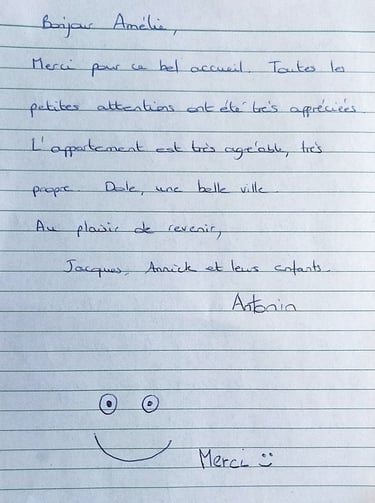 Bonjour Amélie,
Merci pour ce bel accueil. Toutes les
petites attentions ont été très appréciées.
L'appartement est très agréable, très
propre. Dole, une belle ville.
Au plaisir de revenir,
Jacques, Annick et leurs enfants.
Antonin
Merci :)